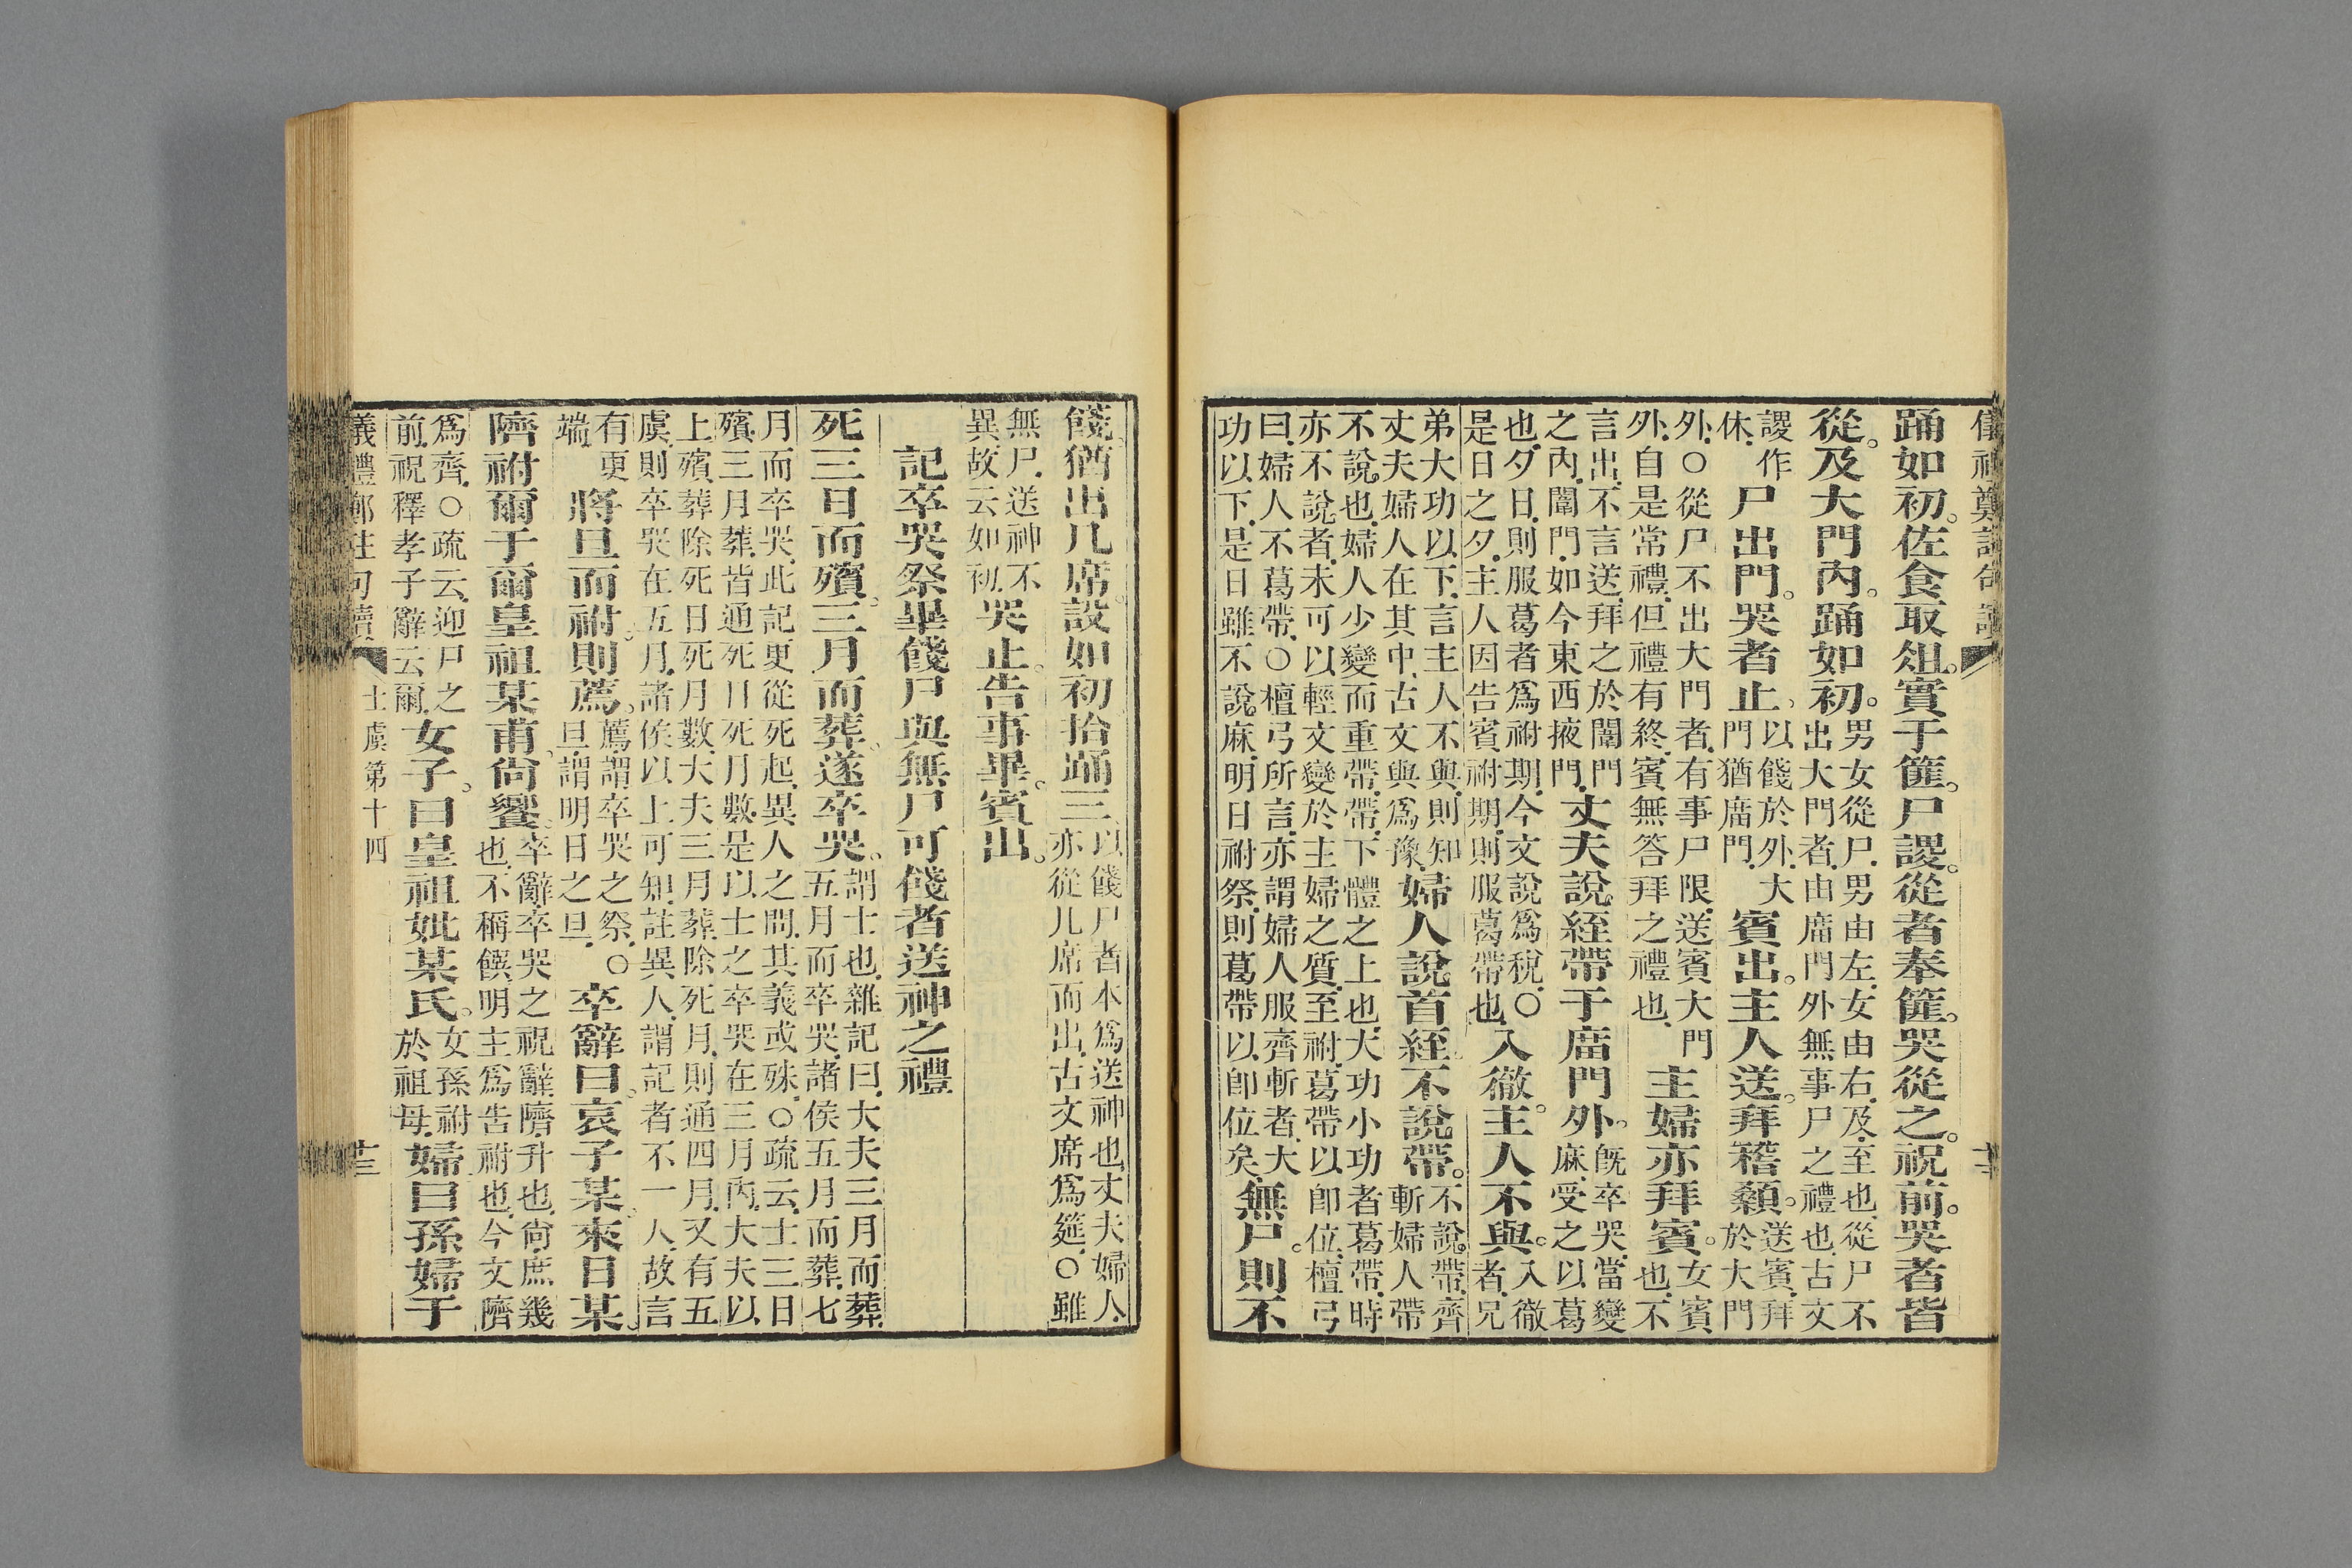 儀禮鄭註句讀
踊如初。佐食取俎。實于篚。尸謖。從者奉篚。哭從之。祝前。哭者皆
從。及大門內。踊如初。男女從尸。男由左。女由右。及。至也。從尸不出大門者。由廟門外無事尸之禮也。古文
謖作休。尸出門。哭者止。以餞於外。大門猶廟門。賓出。主人送。拜稽顙。送賓。拜於大門
外。○從尸不出大門者。有事尸限。送賓大門外。自是常禮。但禮有終。賓無答拜之禮也。主婦亦拜賓。女賓也。不
言出。不言送。拜之於闈門之內。闈門。如今東西掖門。丈夫說絰帶于廟門外。旣卒哭。當變麻。受之以葛
也。夕日。則服葛者爲祔期。今文說爲稅。○是日之夕。主人因告賓祔期。則服葛帶也。入徹。主人不與。入徹者。兄
弟大功以下。言主人不與。則知丈夫婦人在其中。古文與爲豫。婦人說首絰。不說帶。不說帶。齊斬婦人帶
不說也。婦人少變而重帶。帶。下體之上也。大功小功者葛帶。時亦不說者。未可以輕文變於主婦之質。至祔。葛帶以卽位。檀弓
曰。婦人不葛帶。○檀弓所言。亦謂婦人服齊斬者。大功以下。是日雖不說麻。明日祔祭。則葛帶以卽位矣。無尸。則不
餞。猶出几席。設如初。拾踊三。以餞尸者本爲送神也。丈夫婦人。亦從几席而出。古文席爲筵。○雖
無尸。送神不異。故云如初。哭止。告事畢。賓出。
記卒哭祭畢餞尸與無尸可餞者送神之禮
死三日而殯。三月而葬。遂卒哭。謂士也。雜記曰。大夫三月而葬。五月而卒哭。諸侯五月而葬。七
月而卒哭。此記更從死起。異人之問。其義或殊。○疏云。士三日殯。三月葬。皆通死日死月數。是以士之卒哭在三月內。大夫以
上殯葬除死日死月數。大夫三月葬。除死月。則通四月。又有五虞。則卒哭在五月。諸侯以上可知。註異人。謂記者不一人。故言
有更端。將旦而祔。則薦。薦。謂卒哭之祭。○旦。謂明日之旦。卒辭曰。哀子某。來日某。
隮祔爾于爾皇祖某甫。尙饗。卒辭。卒哭之祝辭。隮。升也。尙。庶幾也。不稱饌。明主爲告祔也。今文隮
爲齊。○疏云。迎尸之前。祝釋孝子辭云爾。女子。曰皇祖妣某氏。女孫祔於祖母。婦曰孫婦于
儀禮鄭註句讀 士虞第十四